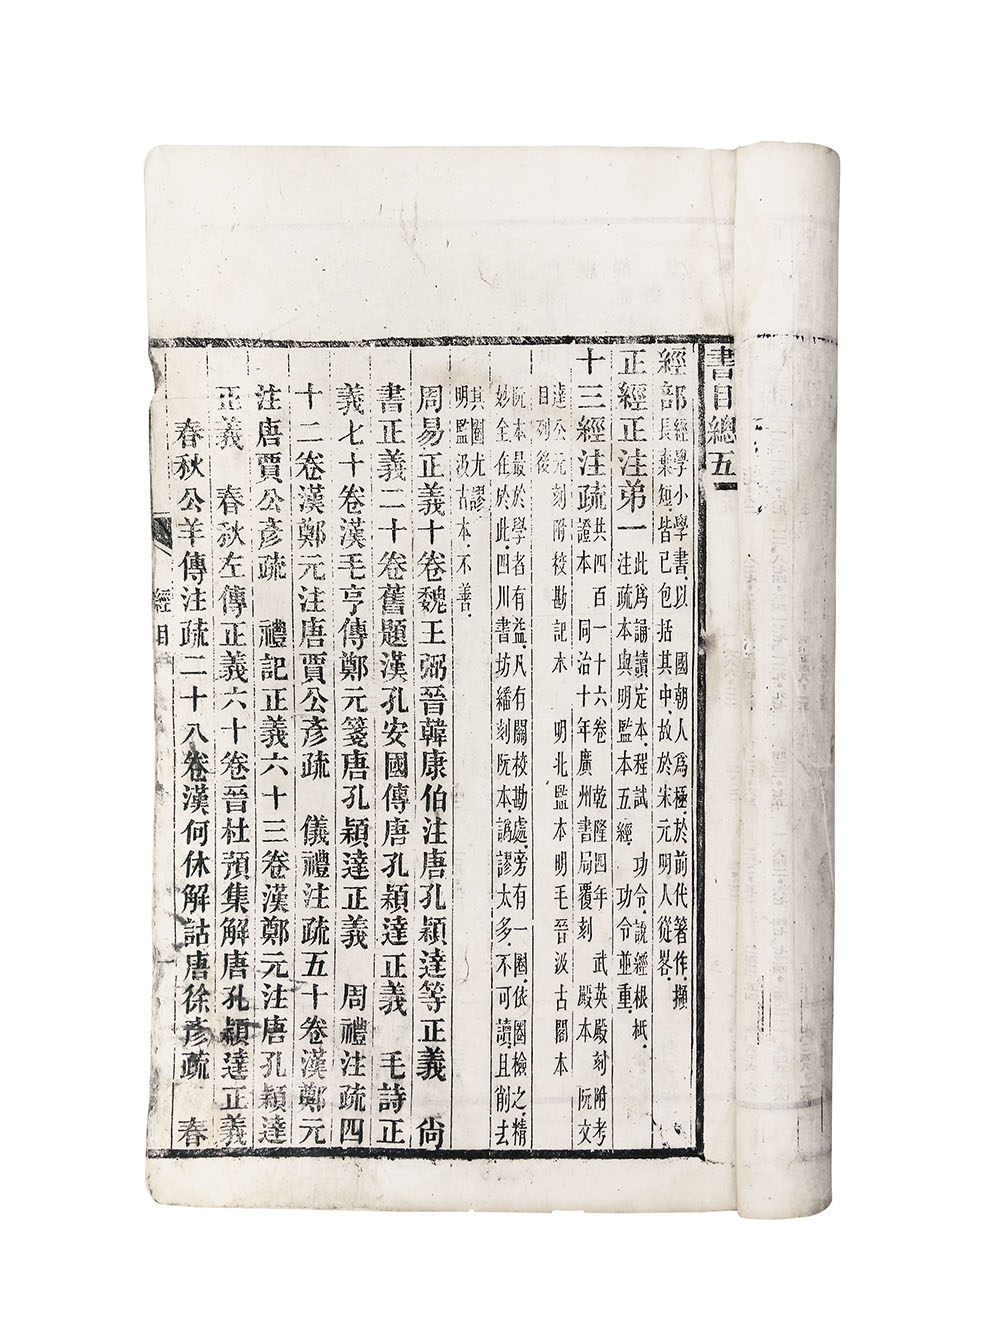 書目總五
經部
經學小學書、以　國朝人爲極於前代著作、擷
長棄短、皆已包括其中、故於宋元明人從畧、
正經正注弟一
此爲誦讀定本、程試　功令、說經根柢、
注疏本與明監本五經、功令並重、
十三經注疏
共四百一十六卷　乾隆四年　武英殿刻附考
證本　同治十年廣州書局覆刻　殿本　阮文
達公元刻附校勘記本　明北監本明毛晉汲古閣本
目列後
阮本最於學者有益、凡有關校勘處、旁有一圈、依圈檢之、精
妙全在於此、四川書坊繙刻阮本譌謬太多、不可讀、且削去
其圈尤謬
明監汲古本、不善、
周易正義十卷魏王弼晉韓康伯注唐孔穎達等正義　尙
書正義二十卷舊題漢孔安國傳唐孔穎達正義　毛詩正
義七十卷漢毛亨傳鄭元箋唐孔穎達正義　周禮注疏四
十二卷漢鄭元注唐賈公彥疏　儀禮注疏五十卷漢鄭元
注唐賈公彥疏　禮記正義六十三卷漢鄭元注唐孔穎達
正義　春秋左傳正義六十卷晉杜預集解唐孔穎達正義
春秋公羊傳注疏二十八卷漢何休解詁唐徐彥疏　春
經目